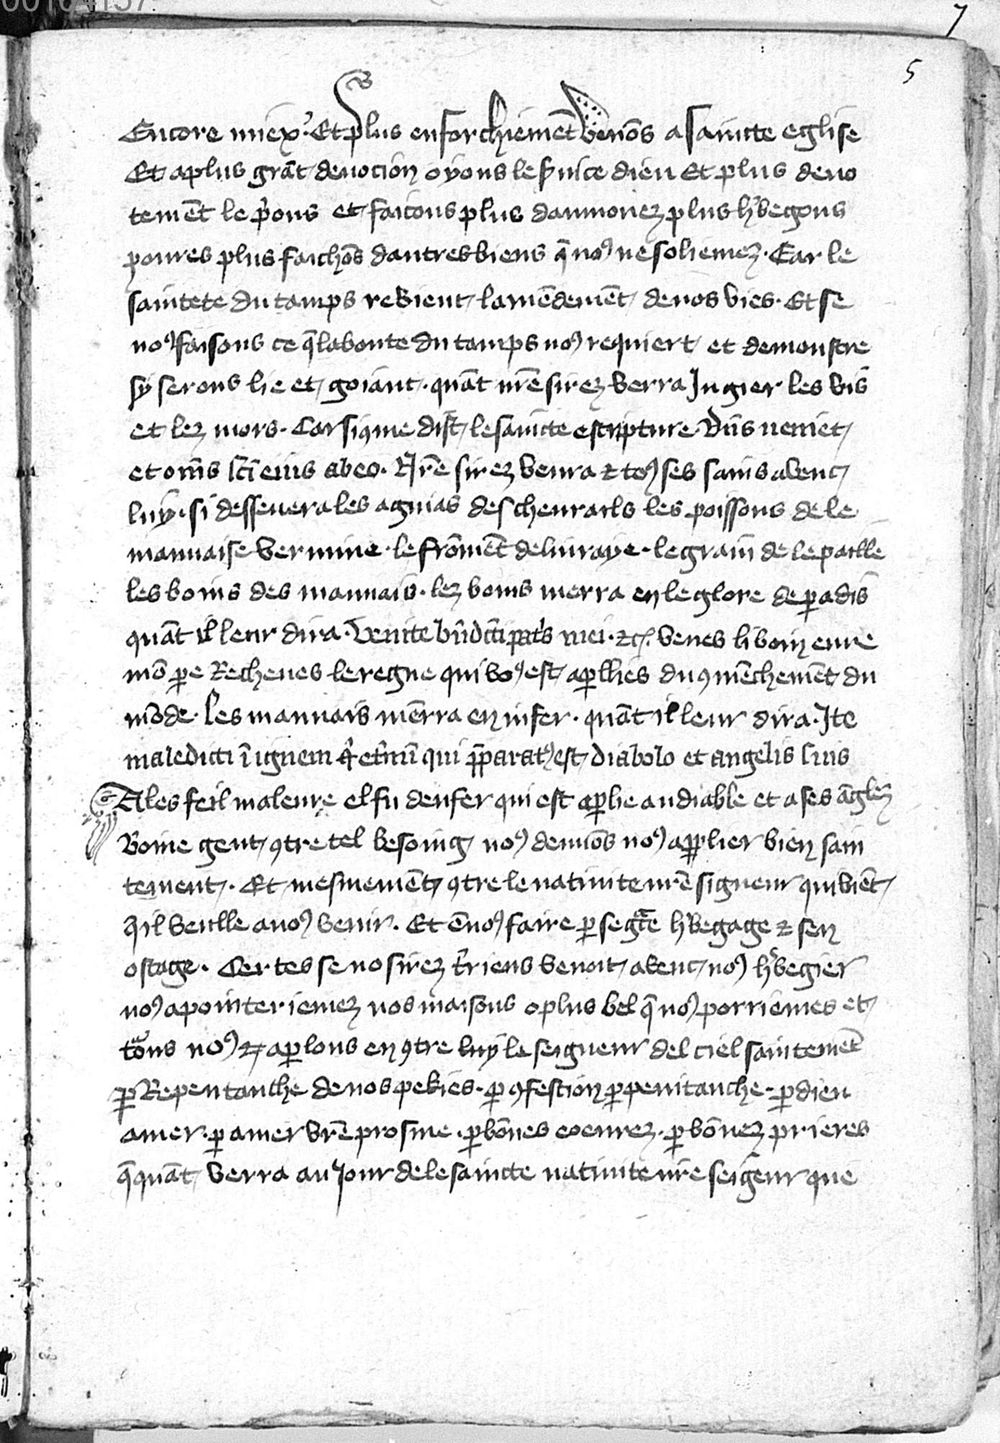 7
5
Encore miex. Et plus enforchiemēt venōs a saincte eglise
Et a plus grāt deuocion oyons le ſuice dieu Et plus deuo
temēt le p̄ons et faisons plus daumonez plus h̄begons
poures plus faichōs dautres biens q̄ noꝰ ne soliemez. Car le
saintete du tamps rekient lamēdemēt de nos vies. Et se
noꝰ faisons ce q̄ la bonte du tamps noꝰ requiert et demonstre
sy serons lie et goiant. quāt nr̄e sirez verra Jugier les vis
et lez mors. Car si que dist le saincte escripture Dn̄s veniet
et om̄s sc̄i eius cū eo. Nr̄e sirez venra ⁊ toꝰ ses sains auenc
luy. si desseuera les agniaus des cheuraus les poissons de le
mauuaise vermine. le fromēt de liuraye. le grain de le paille
les boins des mauuais. lez boins merra en le glore de paradis
quāt il leur dira. Venite bn̄dicti pat̄s mei. ⁊c̄. venes li boin eure
mō pe Recheues le regne qui voꝰ est apllies du ꝯmēchemēt du
mōde. Les mauuais mērra en infer. quāt il leur dira. Ite
maledicti ī ignem et̄nū qui pparatꝰ est diabolo et angelis suis
Ales feil maleure el fu denfer qui est aplie au diable et a ses āglez
Boine gent ꝯtre tel besoing noꝰ deuiōs noꝰ applier bien sain
tement. Et mesmemēt ꝯtre le natiuite nr̄e signeur qui viēt
qil veulle a noꝰ venir. Et ē noꝰ faire p se grāce h̄begage ⁊ sen
ostage. Certes se no sirez t̄riens venoit auenc noꝰ h̄begier
noꝰ apointeriemez nos maisons o plus bel q̄ noꝰ porriemes et
noꝰ ⁊ aplons en ꝯtre luy le seigneur del ciel saintemēt
p Repentanche de nos pekies. p ꝯfession p penitanche. p dieu
amer. p amer vr̄e prosme. p bōnes coeurez. p bōnez prieres
q̄ quāt verra au Jour de le saincte natiuite nr̄e seigneur que